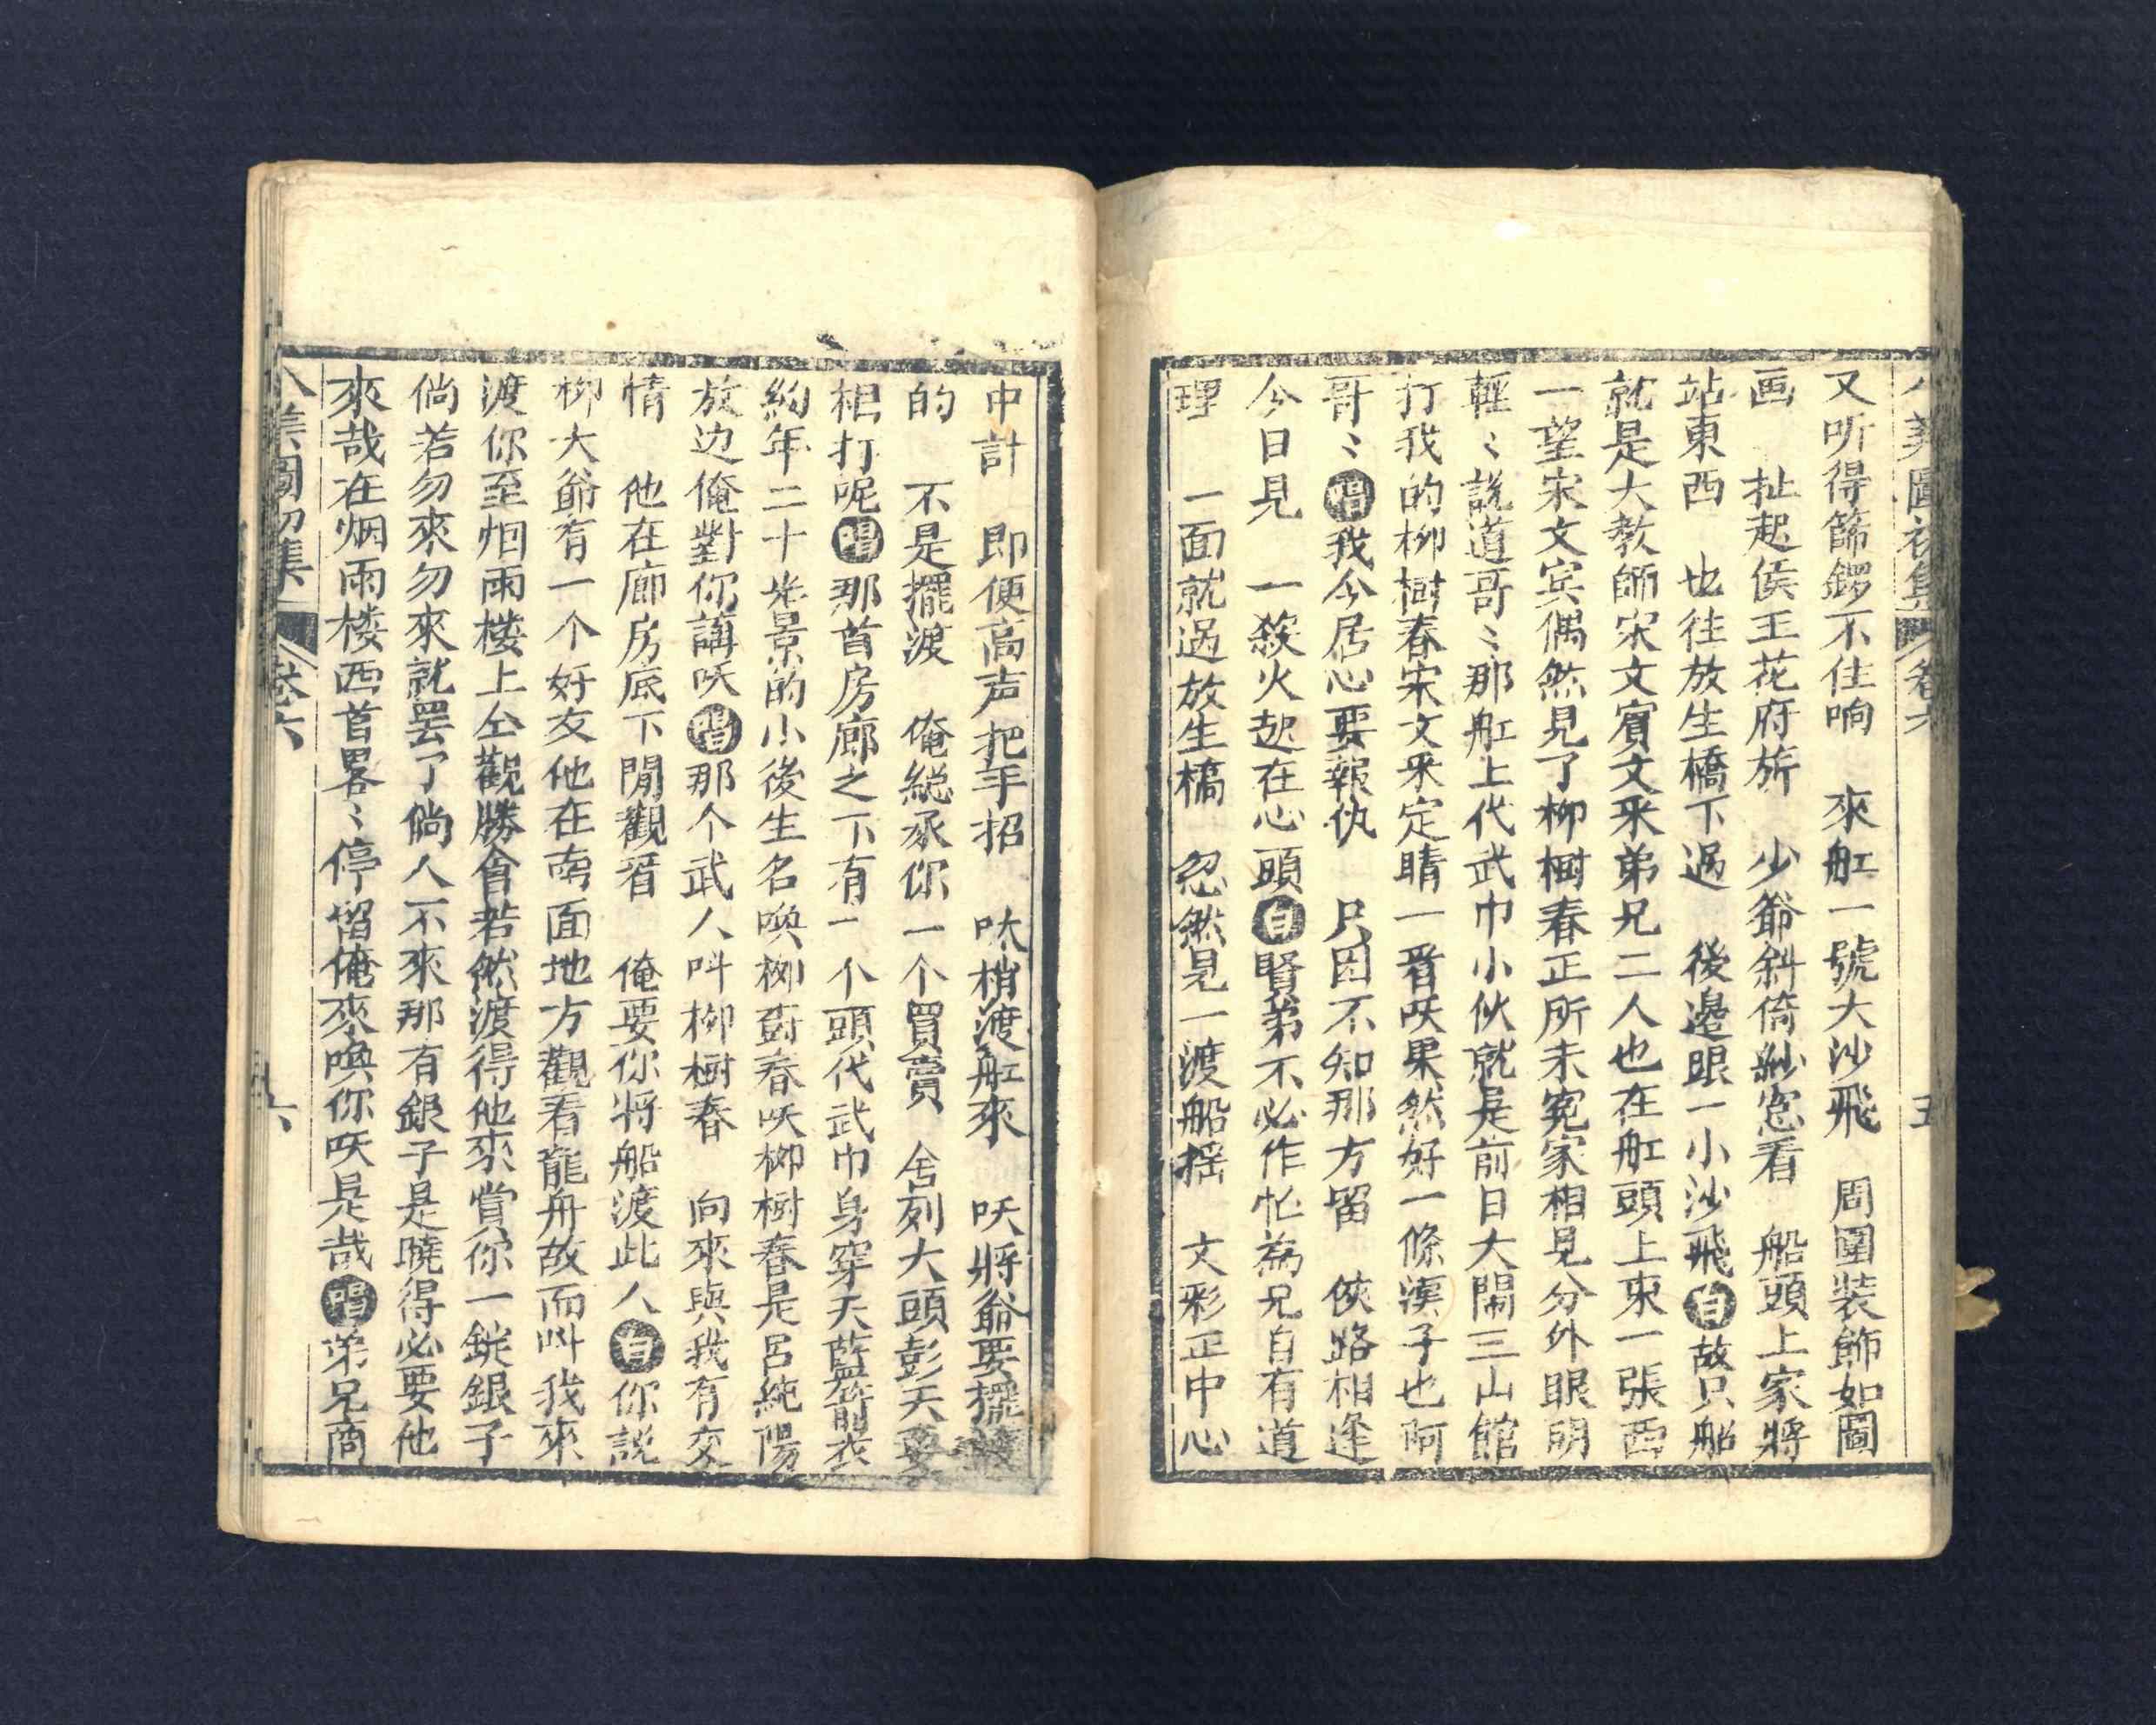 八美圖初集 卷六 五
又听得篩鑼不住响 來舡一號大沙飛 周圍装飾如圖
画 扯起侯王花府旂 少爺斜倚紗窓看 船頭上家將
站東西 也往放生橋下過 後邉跟一小沙飛白故只船
就是大教師宋文賓文采弟兄二人也在舡頭上東一張西
一望宋文宾偶然見了柳樹春正所未寃家相見分外眼明
輕〻說道哥〻那舡上代武巾小伙就是前日大鬧三山館
打我的柳樹春宋文采定睛一看呅果然好一條漢子也阿
哥〻唱我今居心要報仇 只因不知那方留 俠路相逢
今日見 一篏火起在心頭白賢弟不必作忙為兄自有道
理 一面就過放生橋 忽然見一渡船摇 文彩正中心
中計 即便高声把手招 呔梢渡舡來 呅將爺要擺渡
的 不是擺渡 俺総承你一个買賣 舍刻大頭彭天要
相打呢唱那首房廊之下有一个頭代武巾身穿天藍箭衣
約年二十光景的小後生名喚柳樹春呅柳樹春是呂純陽
放边俺對你講呅唱那个武人叫柳樹春 向來與我有交
情 他在廊房底下閒觀看 俺要你將船渡此人白你説
柳大爺有一个好友他在南面地方觀看龍舟故而叫我來
渡你至烟雨楼上仝觀勝會若然渡得他來賞你一錠銀子
倘若勿來勿來就罢了倘人不來那有銀子是曉得必要他
來哉在烟雨楼西首畧〻停留俺來喚你呅是哉唱弟兄商
八美圖初集 卷六 六